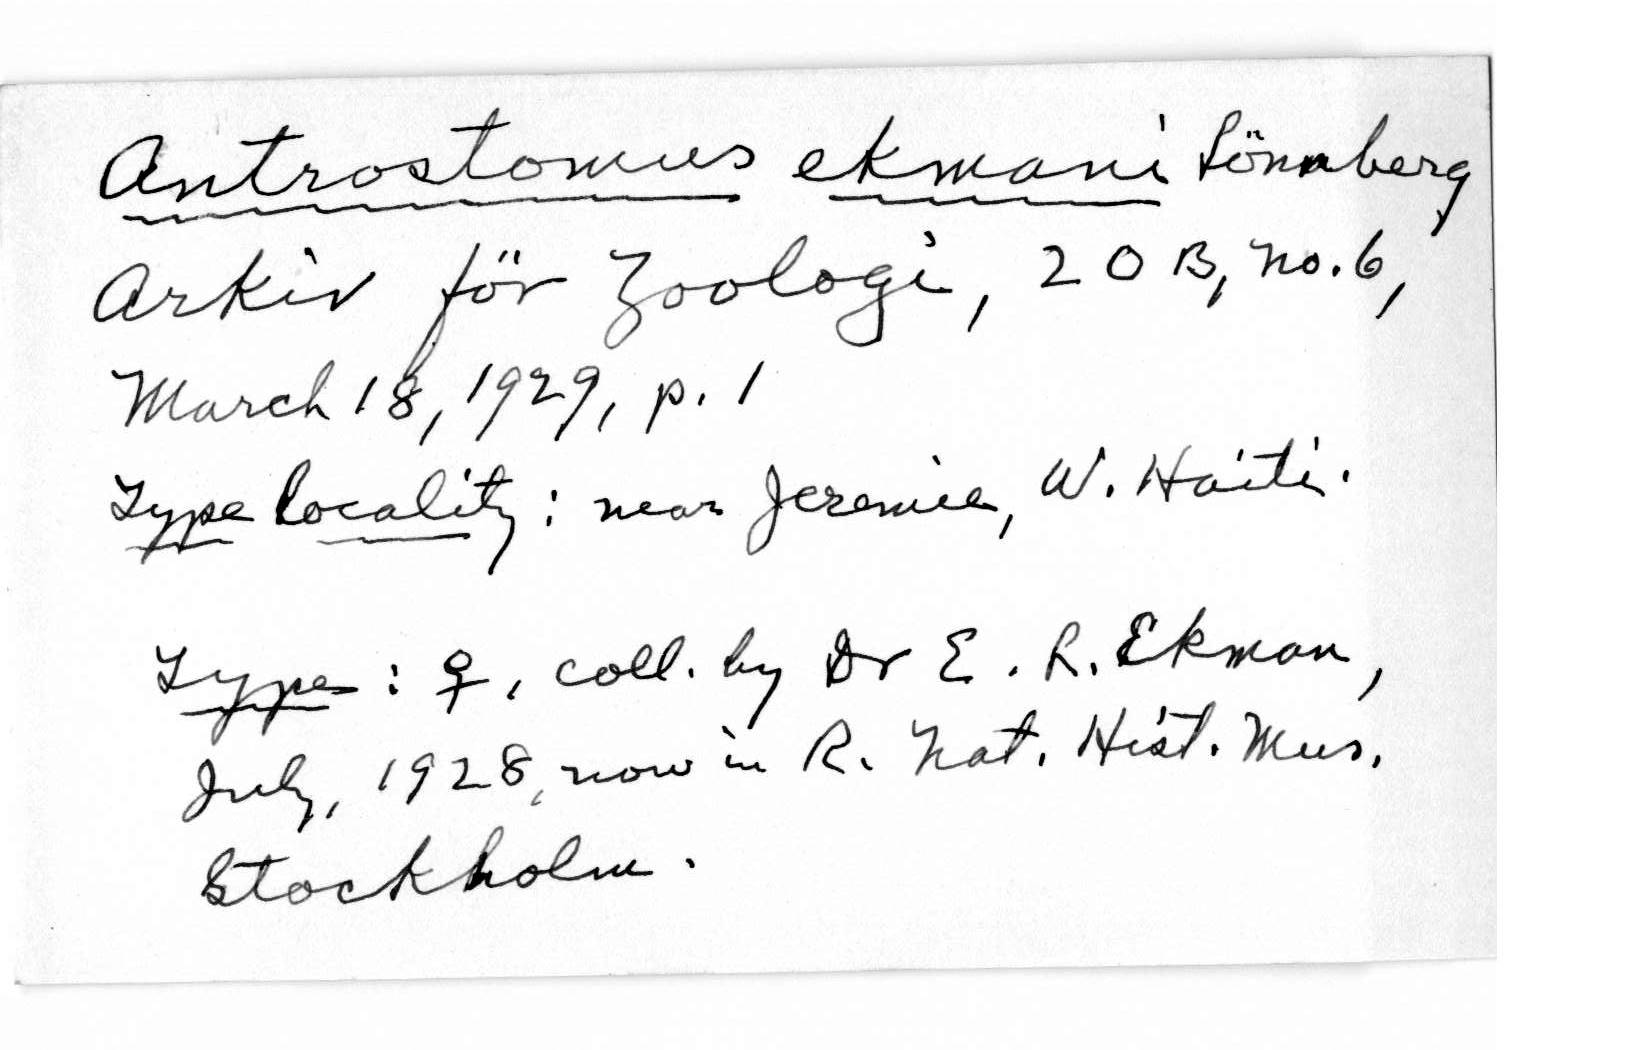 Antrostomus ekmani Lönnberg
Arkiv för Zoologi, 20B, no. 6,
March 18, 1929, p. 1
Type locality: near Jeremie, W. Haiti.
Type: ♀, coll. by Dr E. R. Ekman,
July, 1928, now in R. Nat. Hist. Mus.
Stockholm.